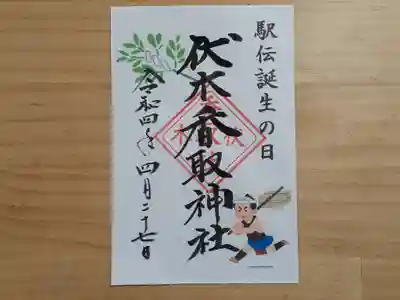 駅伝誕生の日
伏木香取神社
令和四年四月二十七日